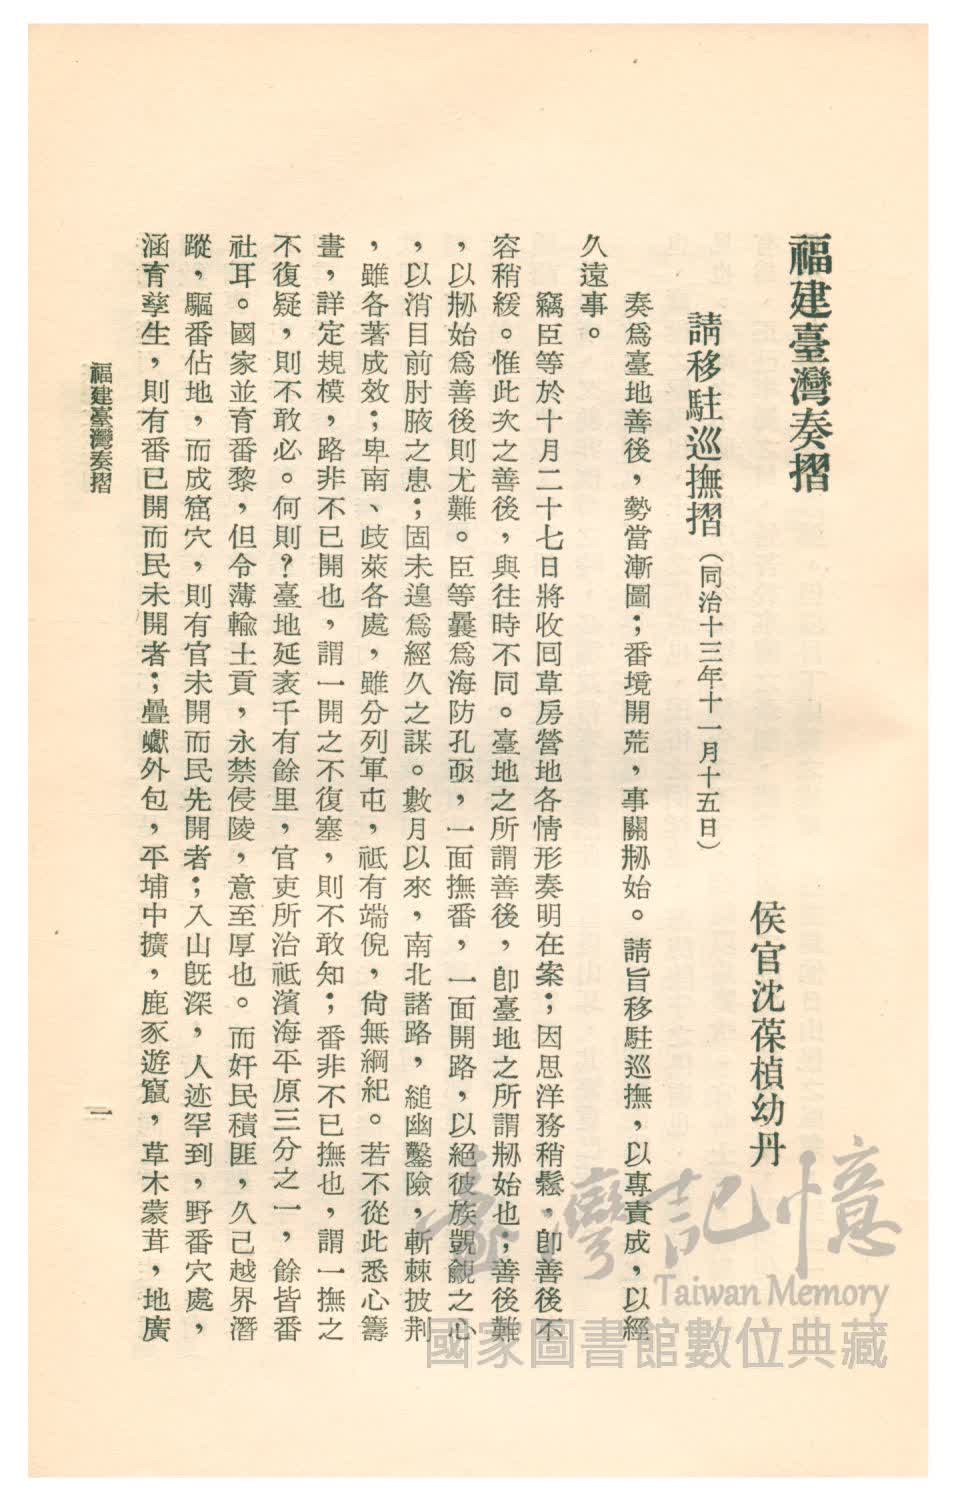 福建臺灣奏摺
侯官沈葆楨幼丹
請移駐巡撫摺（同治十三年十一月十五日）
奏爲臺地善後，勢當漸圖；番境開荒，事關刱始。請旨移駐巡撫，以專責成，以經
久遠事。
竊臣等於十月二十七日將收回草房營地各情形奏明在案；因思洋務稍鬆，卽善後不
容稍緩。惟此次之善後，與往時不同。臺地之所謂善後，卽臺地之所謂刱始也；善後難
，以刱始爲善後則尤難。臣等曩爲海防孔亟，一面撫番，一面開路，以絕彼族覬覦之心
，以消目前肘腋之患；固未遑爲經久之謀。數月以來，南北諸路，縋幽鑿險，斬棘披荆
，雖各著成效；卑南、歧萊各處，雖分列軍屯，祗有端倪，尙無綱紀。若不從此悉心籌
畫，詳定規模，路非不已開也，謂一開之不復塞，則不敢知；番非不已撫也，謂一撫之
不復疑，則不敢必。何則？臺地延袤千有餘里，官吏所治祗濱海平原三分之一，餘皆番
社耳。國家並育番黎，但令薄輸土貢，永禁侵陵，意至厚也。而奸民積匪，久已越界潛
蹤，驅番佔地，而成窟穴，則有官未開而民先開者；入山旣深，人迹罕到，野番穴處，
涵育孳生，則有番已開而民未開者；疊巘外包，平埔中擴，鹿豕遊竄，草木蒙茸，地廣
福建臺灣奏摺
一
臺灣記憶
Taiwan Memory
國家圖書館數位典藏